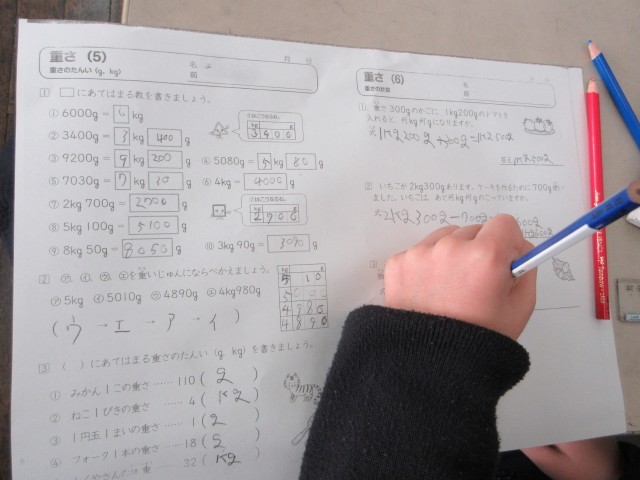 重さ (5)
重さのたんい (g, kg)
名
前
月 日
1 □にあてはまる数を書きましょう。
① 6000g = 6 kg
② 3400g = 3 kg 400 g
kg g
3 4 0 0
③ 9200g = 9 kg 200 g
④ 5080g = 5 kg 80 g
⑤ 7030g = 7 kg 30 g
⑥ 4kg = 4000 g
⑦ 2kg 700g = 2700 g
kg g
2 7 0 0
⑧ 5kg 100g = 5100 g
⑨ 8kg 50g = 8050 g
⑩ 3kg 90g = 3090 g
2 ㋐, ㋑, ㋒, ㋓を重いじゅんにならべかえましょう。
㋐ 5kg ㋑ 5010g ㋒ 4890g ㋓ 4kg980g
( ウ → エ → ア → イ )
3 ( )にあてはまる重さのたんい (g, kg) を書きましょう。
① みかん1この重さ …… 110 ( g )
② ねこ1ぴきの重さ …… 4 ( kg )
③ 1円玉1まいの重さ …… 1 ( g )
④ フォーク1本の重さ …… 18 ( g )
32 ( kg )
重さ (6)
重さの計算
名
前
① 重さ300gのかごに, 1kg200gのトマトを
入れると, 何kg何gになりますか。
式 1kg200g+300g=1kg500g
答え 1kg500g
② いちごが2kg300gあります。ケーキを作るために700g使い
ました。いちごは, あと何kg何gのこっていますか。
式 2kg300g-700g